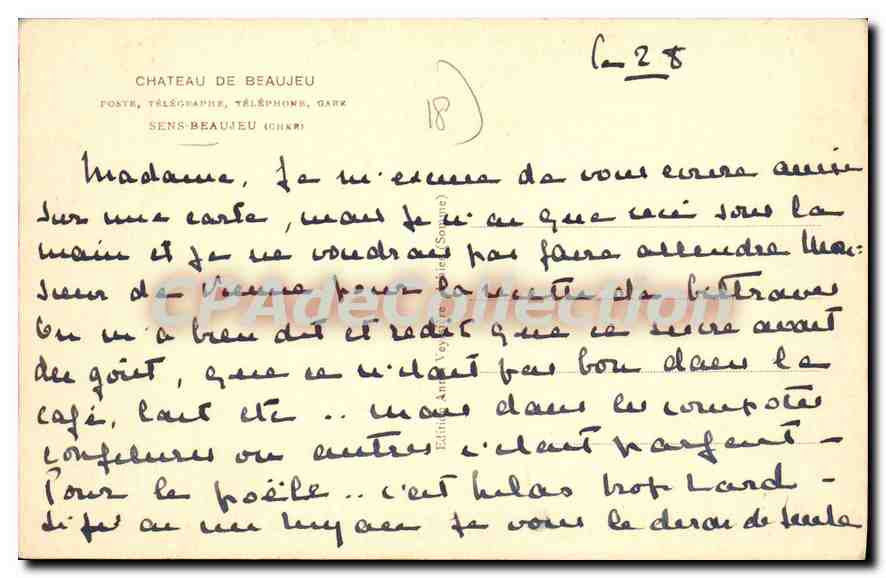 Ce 28
CHATEAU DE BEAUJEU
POSTE, TÉLÉGRAPHE, TÉLÉPHONE, GARE
SENS-BEAUJEU (CHER)
18
Madame, Je m'excuse de vous écrire ainsi
sur une carte, mais je n'ai que ceci sous la
main et je ne voudrais pas faire attendre Mon-
sieur de Vienne pour la recette de betteraves
On m'a bien dit et redit que ce sucre avait
du goût, que ce n'était pas bon dans le
café, lait etc .. mais dans les compotes
confitures ou autres c'était parfait -
Pour le poêle .. c'est hélas trop tard -
Si j'ai un moyen je vous le dirai de suite
Edition Anna (Somme)
CPAdeCollection